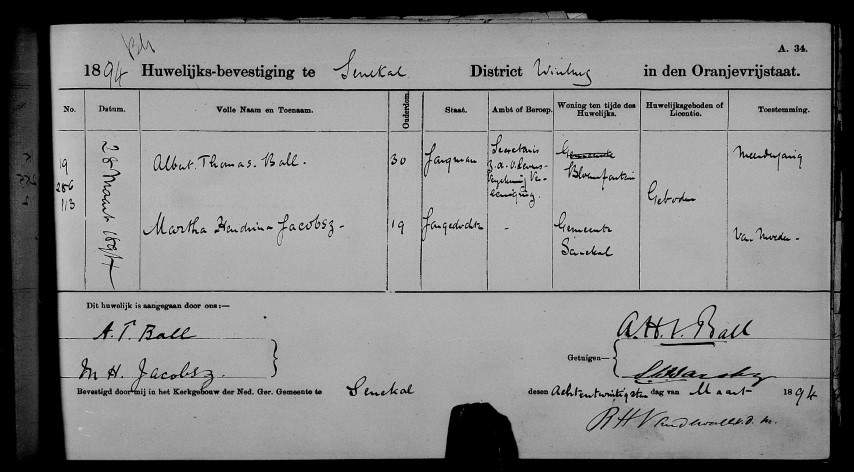 Bh
A. 34.
1894 Huwelijks-bevestiging te Senekal District Winburg in den Oranjevrijstaat.
No. Datum. Volle Naam en Toenaam. Ouderdom. Staat. Ambt of Beroep. Woning ten tijde des Huwelijks. Huwelijksgeboden of Licentie. Toestemming.
19
286
113
28 Maart 1894
Albert Thomas Ball. 30 Jongman Secretaris
z. a. o. Levens-
Ver-
eeniging.
Gemeente
Bloemfontein
Meerderjarig
Geboden
Martha Hendrina Jacobsz 19 Jongedochter - Gemeente
Senekal
Van Moeder -
Dit huwelijk is aangegaan door ons:—
A. T. Ball
M H. Jacobsz.
Getuigen—
A. H. V. Ball
Bevestigd door mij in het Kerkgebouw der Ned. Ger. Gemeente te Senekal dezen Achtentwintigsten dag van Maart 1894